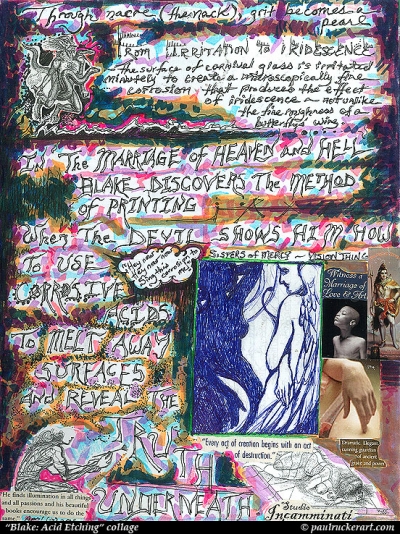 Through nacre (the knack), grit becomes a
pearl
FROM IRRITATION to IRIDESCENCE
The surface of carnival glass is irritated
minutely to create a microscopically fine
corrosion that produces the effect
of iridescence - not unlike
the fine roughness of a
butterfly's wing
IN The MARRIAGE of HEAVEN and HELL
BLAKE DISCOVERS The METHOD
of PRINTING
When The DEVIL SHOWS HIM HOW
TO USE
CORROSIVE
ACIDS
TO MELT AWAY
SURFACES
and REVEAL THE
TRUTH
UNDERNEATH
SISTERS of MERCY ~ VISION THING
Witness a
Marriage of
Love & Art.
"Every act of creation begins with an act
of destruction."
Dramatic, Elegant
He finds illumination in all things
and all passions and his beautiful
books encourage us to do the
same."
Studio
Incamminati
"Blake: Acid Etching" collage
© paulruckerart.com